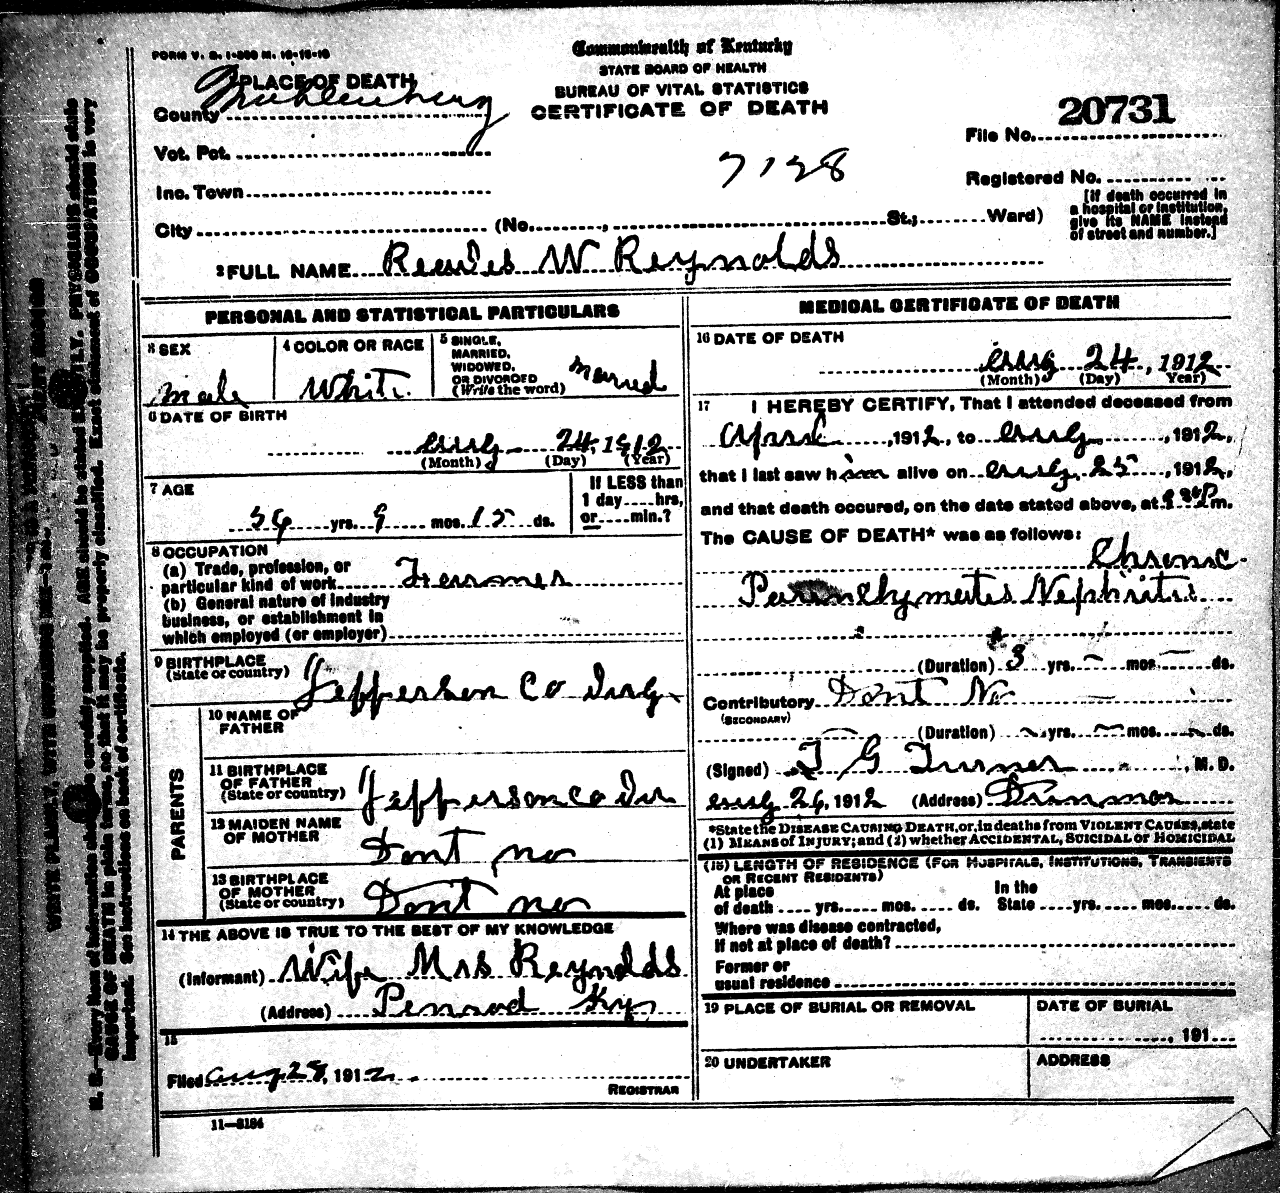 FORM V. S. 1-200 M. 10-18-10
Commonwealth of Kentucky
STATE BOARD OF HEALTH
BUREAU OF VITAL STATISTICS
CERTIFICATE OF DEATH
PLACE OF DEATH
County Muhlenberg
Vot. Pct.
Inc. Town
City (No. , St.; Ward)
20731
File No.
7128
Registered No.
[If death occurred in
a hospital or institution,
give its NAME instead
of street and number.]
2 FULL NAME W Reynolds
PERSONAL AND STATISTICAL PARTICULARS
3 SEX
Male
4 COLOR OR RACE
White
5 SINGLE,
MARRIED,
WIDOWED,
OR DIVORCED
(Write the word)
Married
6 DATE OF BIRTH
Aug 24, 1912
(Month) (Day) (Year)
7 AGE
yrs. 9 mos. 15 ds.
If LESS than
1 day....hrs,
or....min.?
8 OCCUPATION
(a) Trade, profession, or
particular kind of work Farmer
(b) General nature of industry
business, or establishment in
which employed (or employer)
9 BIRTHPLACE
(State or country)
Jefferson Co
PARENTS
10 NAME OF
FATHER
11 BIRTHPLACE
OF FATHER
(State or country)
Jefferson co
12 MAIDEN NAME
OF MOTHER
Dont no
13 BIRTHPLACE
OF MOTHER
(State or country)
Dont no
14 THE ABOVE IS TRUE TO THE BEST OF MY KNOWLEDGE
(Informant) Wife Mrs Reynolds
(Address) Penrod Ky
15
Filed Aug 28, 1912
REGISTRAR
11-3184
MEDICAL CERTIFICATE OF DEATH
16 DATE OF DEATH
Aug 24, 1912
(Month) (Day) (Year)
17 I HEREBY CERTIFY, That I attended deceased from
April, 1912, to Aug, 1912,
that I last saw him alive on Aug 25, 1912,
and that death occured, on the date stated above, at P m.
The CAUSE OF DEATH* was as follows:
Chronic
Nephritis
(Duration) 3 yrs. - mos. - ds.
Contributory Dont No
(SECONDARY)
(Duration) yrs. mos. ds.
(Signed) T G Turner, M. D.
Aug 26, 1912 (Address) Dunmor
*State the DISEASE CAUSING DEATH, or, in deaths from VIOLENT CAUSES, state
(1) MEANS of INJURY; and (2) whether ACCIDENTAL, SUICIDAL or HOMICIDAL
(18) LENGTH OF RESIDENCE (FOR HOSPITALS, INSTITUTIONS, TRANSIENTS
OR RECENT RESIDENTS)
At place In the
of death yrs. mos. ds. State yrs. mos. ds.
Where was disease contracted,
if not at place of death?
Former or
usual residence
19 PLACE OF BURIAL OR REMOVAL
DATE OF BURIAL
, 191
20 UNDERTAKER
ADDRESS
N. B.—Every item of information should be carefully supplied. AGE should be stated EXACTLY. PHYSICIANS should state
CAUSE OF DEATH in plain terms, so that it may be properly classified. Exact statement of OCCUPATION is very
important. See instructions on back of certificate.